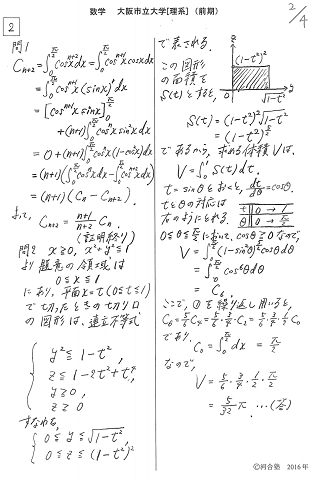 数学 大阪市立大学[理系](前期)
2/4
2
問1
C_{n+2} = ∫_0^{π/2} cos^{n+2}x dx = ∫_0^{π/2} cos^{n+1}x cosx dx
= ∫_0^{π/2} cos^{n+1}x (sinx)' dx
= [cos^{n+1}x sinx]_0^{π/2}
+ (n+1)∫_0^{π/2} cos^n x sin^2x dx
= 0 + (n+1)∫_0^{π/2} cos^n x (1-cos^2x) dx
= (n+1)(∫_0^{π/2} cos^n x dx - ∫_0^{π/2} cos^{n+2}x dx)
= (n+1)(C_n - C_{n+2}).
よって,
C_{n+2} = (n+1)/(n+2) C_n.
(証明終り)
問2 x≧0, x^2+y^2≦1
より題意の領域は
0≦x≦1
にあり,平面x=t(0≦t≦1)
で切ったときの切り口
の図形は,連立不等式
y^2≦1-t^2,
z≦1-2t^2+t^4,
y≧0,
z≧0
すなわち,
0≦y≦√(1-t^2),
0≦z≦(1-t^2)^2
で表される.
z
(1-t^2)^2
この図形
の面積を
S(t)とすると,
0
√(1-t^2)
y
S(t) = (1-t^2)^2 √(1-t^2)
= (1-t^2)^{5/2}
であるから,求める体積Vは,
V = ∫_0^1 S(t) dt.
t=sinθとおくと, dt/dθ=cosθ.
tとθの対応は
右のようにとれる.
t 0 → 1
θ 0 → π/2
0≦θ≦π/2において, cosθ≧0なので,
V = ∫_0^{π/2} (1-sin^2θ)^{5/2} cosθ dθ
= ∫_0^{π/2} cos^6θ dθ
= C_6.
ここで,①を繰り返し用いると,
C_6 = 5/6 C_4 = 5/6・3/4・C_2 = 5/6・3/4・1/2 C_0
であり,
C_0 = ∫_0^{π/2} dx = π/2
なので,
V = 5/6・3/4・1/2・π/2
= 5/32 π …(答)
©河合塾 2016年